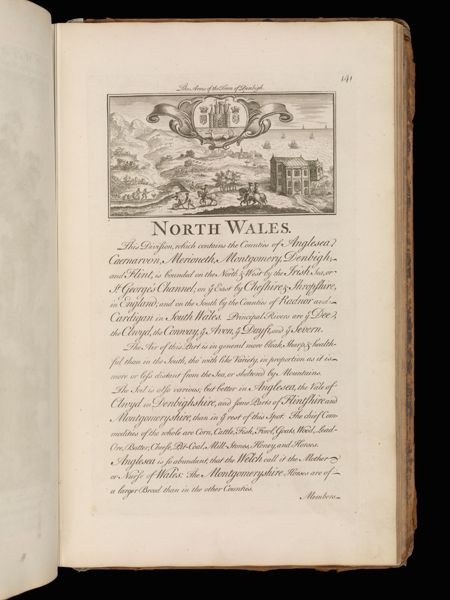 141
The Arms of the Town of Denbigh.
NORTH WALES.
This Division, which contains the Counties of Anglesea,
Caernarvon, Merioneth, Montgomery, Denbigh,
and Flint, is bounded on the North & West by the Irish Sea, or
St. George's Channel; on ye East by Cheshire & Shropshire,
in England; and on the South by the Counties of Radnor and
Cardigan in South Wales. Principal Rivers are ye Dee,
the Clwyd, the Conway, ye Avon, ye Dayfi, and ye Severn.
The Air of this Part is in general more bleak, Sharp, & health-
ful than in the South, tho' with like Variety, in proportion as it is
more or less distant from the Sea, or shelter'd by Mountains.
The Soil is also various; but better in Anglesea, the Vale of
Clwyd in Denbighshire, and some Parts of Flintshire and
Montgomeryshire, than in ye rest of this Spot. The chief Com-
modities of the whole are Corn, Cattle, Fish, Fowl, Goats, Wool, Lead-
Ore, Butter, Cheese, Pit-Coal, Mill-Stones, Honey, and Horses.
Anglesea is so abundant, that the Welch call it the Mother
or Nurse of Wales: The Montgomeryshire Horses are of
a larger Breed than in the other Counties.
Members